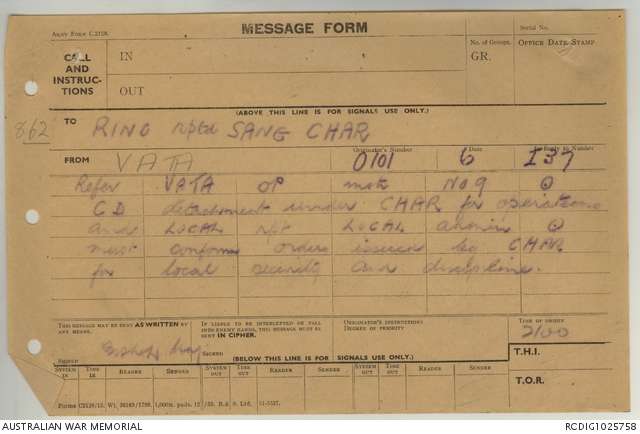 Army Form C.2128.
MESSAGE FORM
Serial No.
CALL AND INSTRUC-TIONS
IN
OUT
No. of Groups.
GR.
OFFICE DATE STAMP
(ABOVE THIS LINE IS FOR SIGNALS USE ONLY.)
862
TO RINO rptd SANG CHAR
FROM VATA
Originator's Number 0101
Date 6
In Reply to Number 137
Refer VATA op No 9
CD detachment under CHAR for operations
and LOCAL rpt LOCAL admin
must conform orders issued by CHAR
for local security and discipline.
THIS MESSAGE MAY BE SENT AS WRITTEN BY ANY MEANS.
IF LIABLE TO BE INTERCEPTED OR FALL INTO ENEMY HANDS, THIS MESSAGE MUST BE SENT IN CIPHER.
ORIGINATOR'S INSTRUCTIONS DEGREE OF PRIORITY
TIME OF ORIGIN
2100
Signed Maj
(BELOW THIS LINE IS FOR SIGNALS USE ONLY.)
T.H.I.
T.O.R.
SYSTEM IN
TIME IN
READER
SENDER
SYSTEM OUT
TIME OUT
READER
SENDER
SYSTEM OUT
TIME OUT
READER
SENDER
AUSTRALIAN WAR MEMORIAL
RCDIG1025758